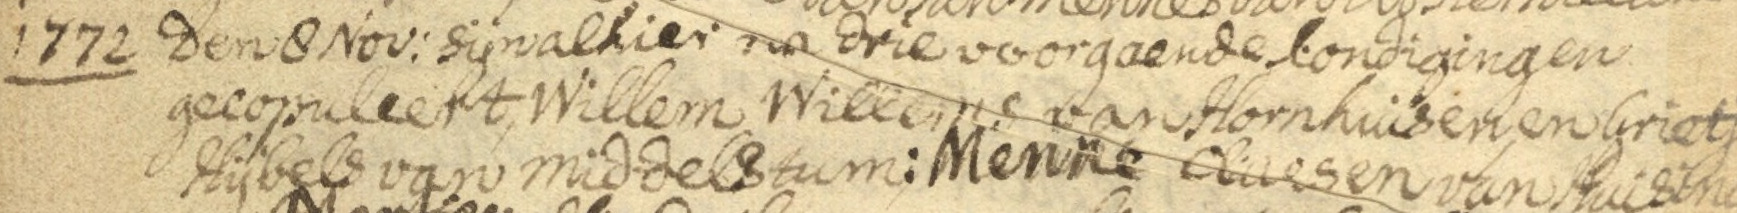 1772 Den 8 Nov: sijn alhier na drie voorgaende kondigingen
gecopuleert, Willem Willems van Hornhuisen en Grietj
Hijbels van middelstum: Menne Claesen van